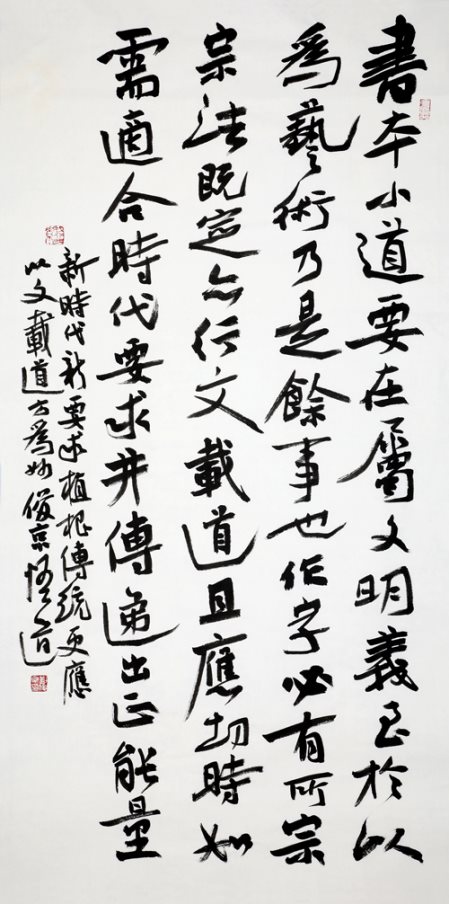 書本小道要在屬文明義至於以
爲藝術乃是餘事也作字必有所宗
宗法既定亦行文載道且應切時如
需適合時代要求并傳遞出正能量
新時代新要求植根傳統更應
以文載道方爲妙俊京悟道